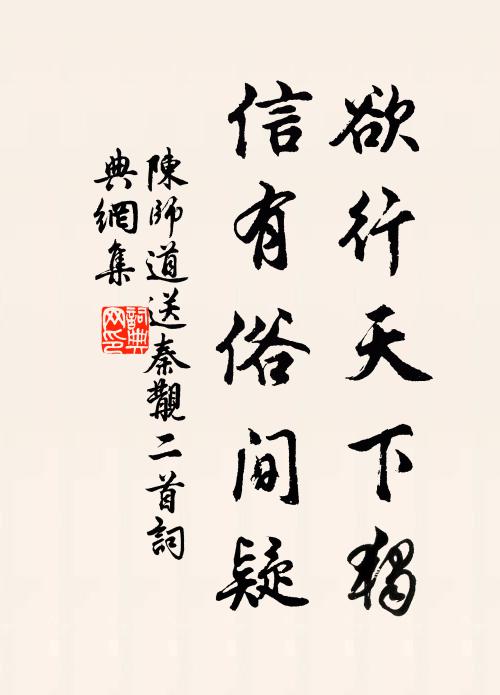 欲行天下獨
信有俗間疑
陳師道送秦覯二首詞
典網集
詞典
网印